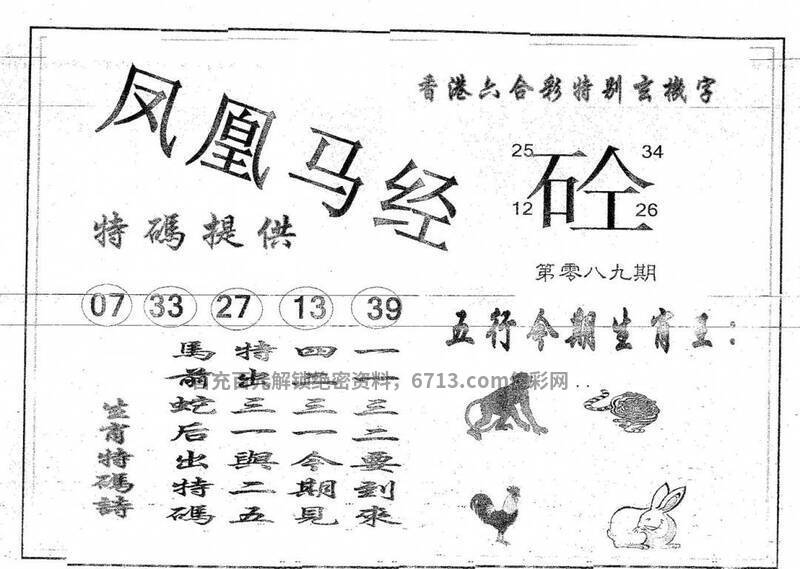 凤凰马经
香港六合彩特别玄機字
25 34
砼
12 26
特碼提供
第零八九期
07 33 27 13 39
五行今期生肖王：
一三二要到來
四三一今期見
特出三一與二五
馬前蛇后出特碼
生肖特碼詩
充百元解锁绝密资料；6713.com彩网